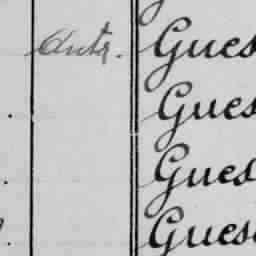 Autr. Gues
Gues
Gues
Gues